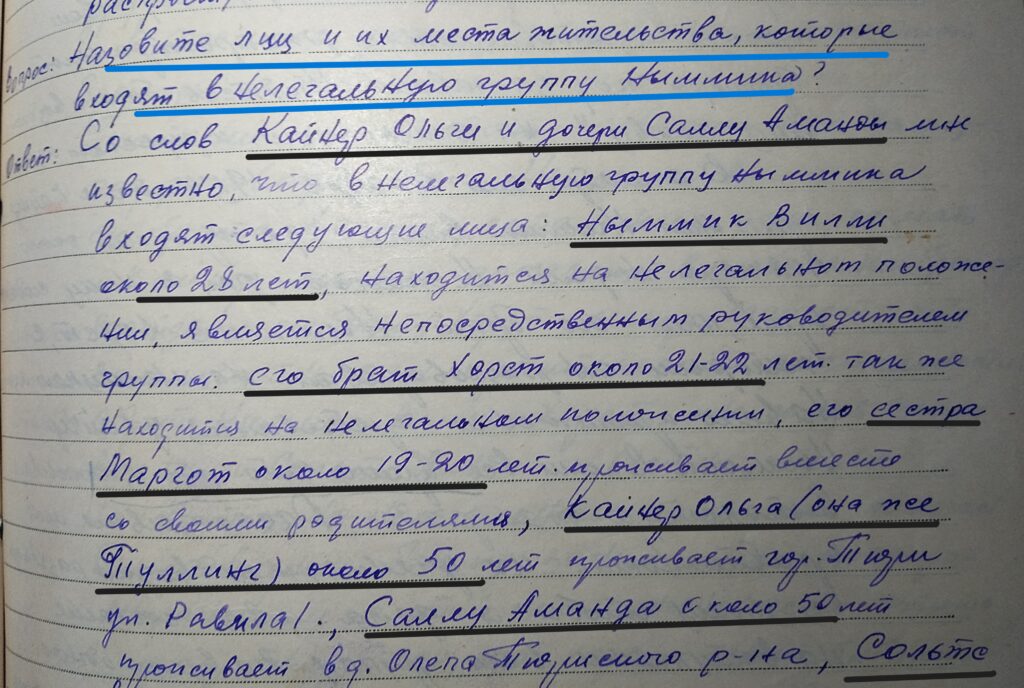 Вопрос: Назовите лиц и их места жительства, которые
входят в нелегальную группу Ныммика?
Ответ: Со слов Кайнер Ольги и дочери Саллу Аманды мне
известно, что в нелегальную группу Ныммика
входят следующие лица: Ныммик Вилли
около 28 лет, находится на нелегальном положе-
нии, является непосредственным руководителем
группы. его брат Хорст около 21-22 лет. так же
находится на нелегальном положении, его сестра
Маргот около 19-20 лет. проживает вместе
со своими родителями, Кайнер Ольга (она же
Туллинг) около 50 лет проживает гор. Тюри
ул. Равила 1., Саллу Аманда около 50 лет
проживает в д. Олепа Тюриского р-на, Сольтс